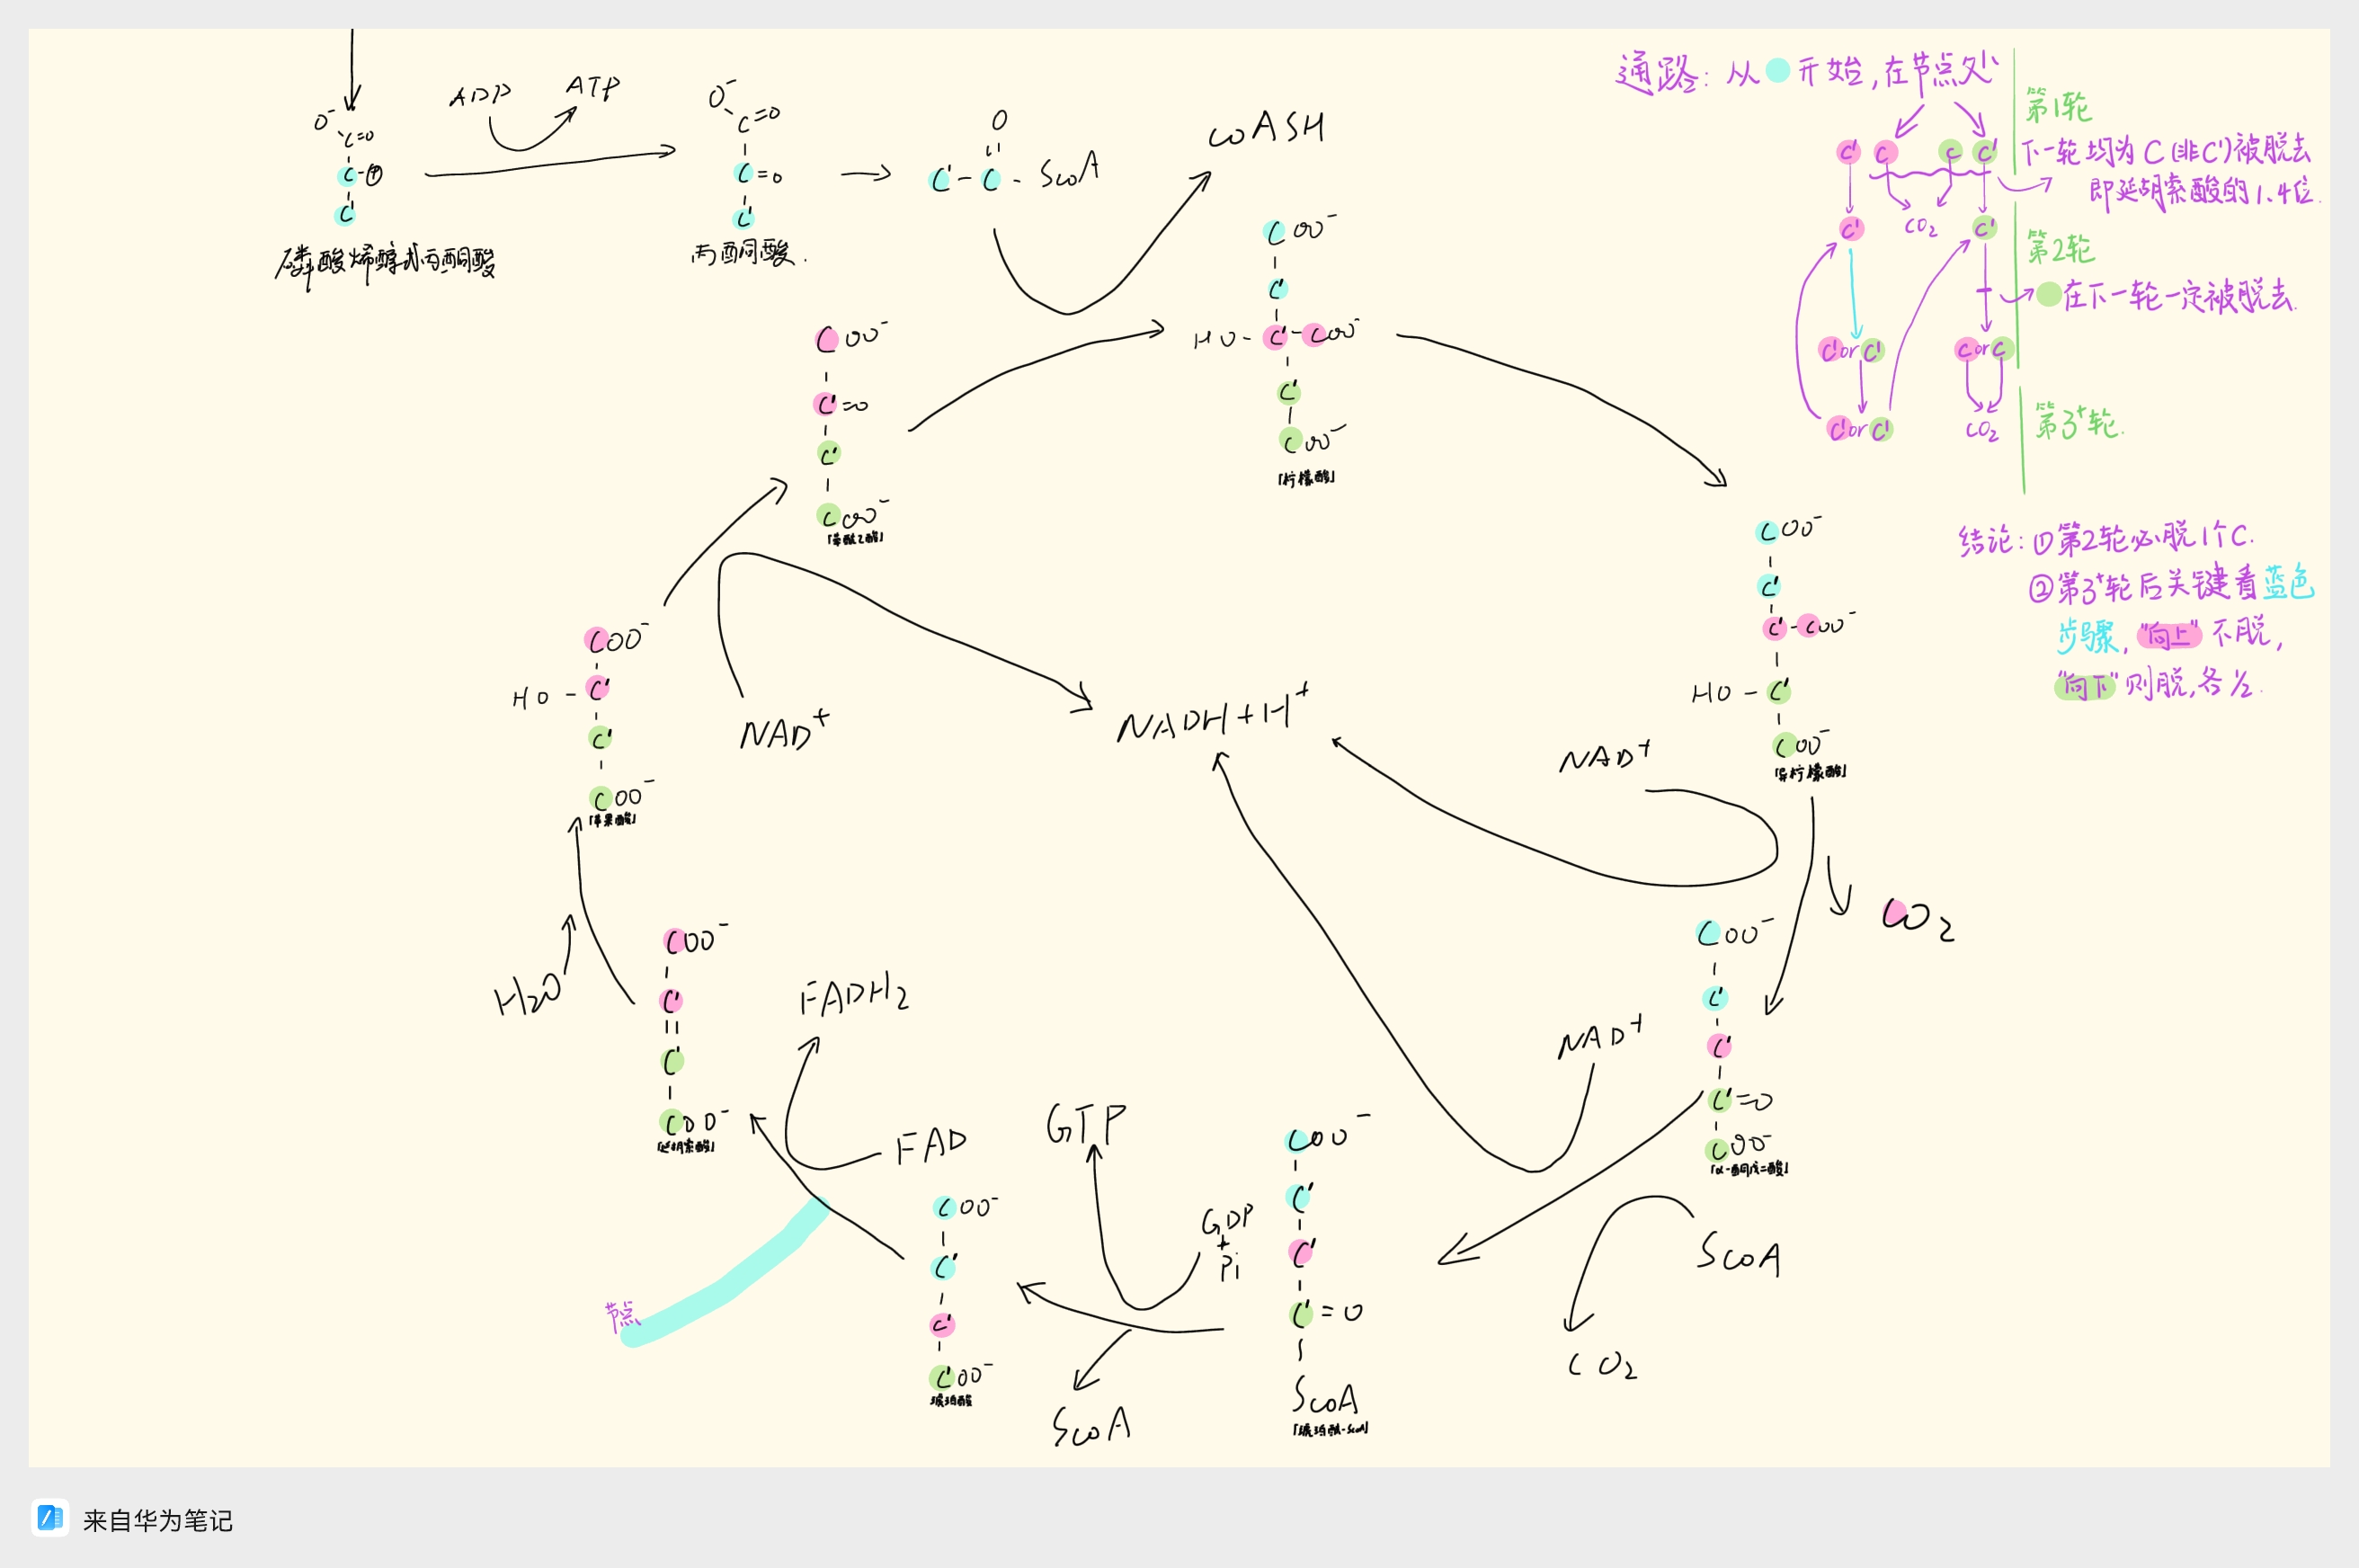 ADP
ATP
O⁻
C=O
C-Ⓟ
C'
磷酸烯醇式丙酮酸
O⁻
C=O
C=O
C'
丙酮酸.
O
C'-C-ScoA
coASH
COO⁻
C'
HO-C'-COO⁻
C'
COO⁻
「柠檬酸」
COO⁻
C'=O
C'
COO⁻
「草酰乙酸」
COO⁻
C'
C'-COO⁻
HO-C'
COO⁻
「异柠檬酸」
NAD⁺
CO₂
COO⁻
C'
C'
C'=O
COO⁻
「α-酮戊二酸」
NAD⁺
ScoA
CO₂
COO⁻
C'
C'
C'=O
ScoA
「琥珀酰-ScoA」
GTP
GDP
+
Pi
ScoA
COO⁻
C'
C'
C'OO⁻
琥珀酸
FADH₂
FAD
节点
COO⁻
C'
C'
COO⁻
「延胡索酸」
H₂O
COO⁻
HO-C'
C'
COO⁻
「苹果酸」
NAD⁺
NADH+H⁺
通路: 从 开始,在节点处
第1轮
C' C C C'
下一轮均为C(非C')被脱去
即延胡索酸的1.4位.
CO₂
C' C'
第2轮
在下一轮一定被脱去.
C'orC' CorC
C'orC' CO₂
第3⁺轮.
结论:①第2轮必脱1个C.
②第3⁺轮后关键看蓝色
步骤,"向上"不脱,
"向下"则脱,各½.
来自华为笔记